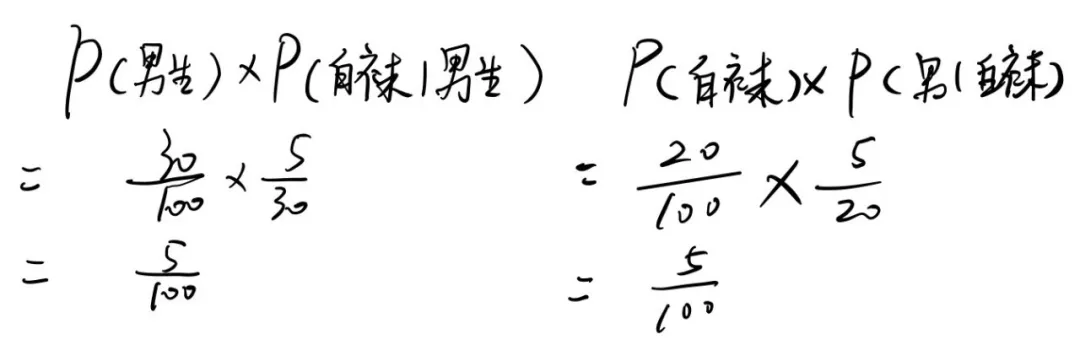 P(男生)×P(白袜|男生)
= 30/100 × 5/30
= 5/100
P(白袜)×P(男|白袜)
= 20/100 × 5/20
= 5/100